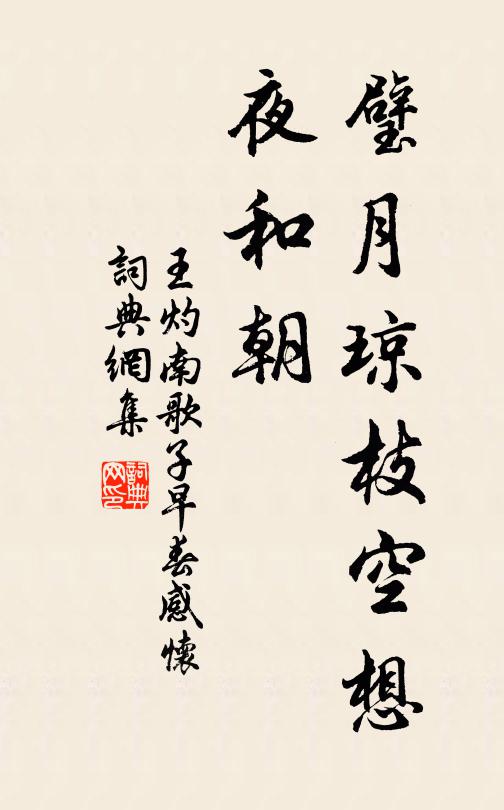 璧月琼枝空想
夜和朝
王灼南歌子早春感懷
詞典網集
詞典网印